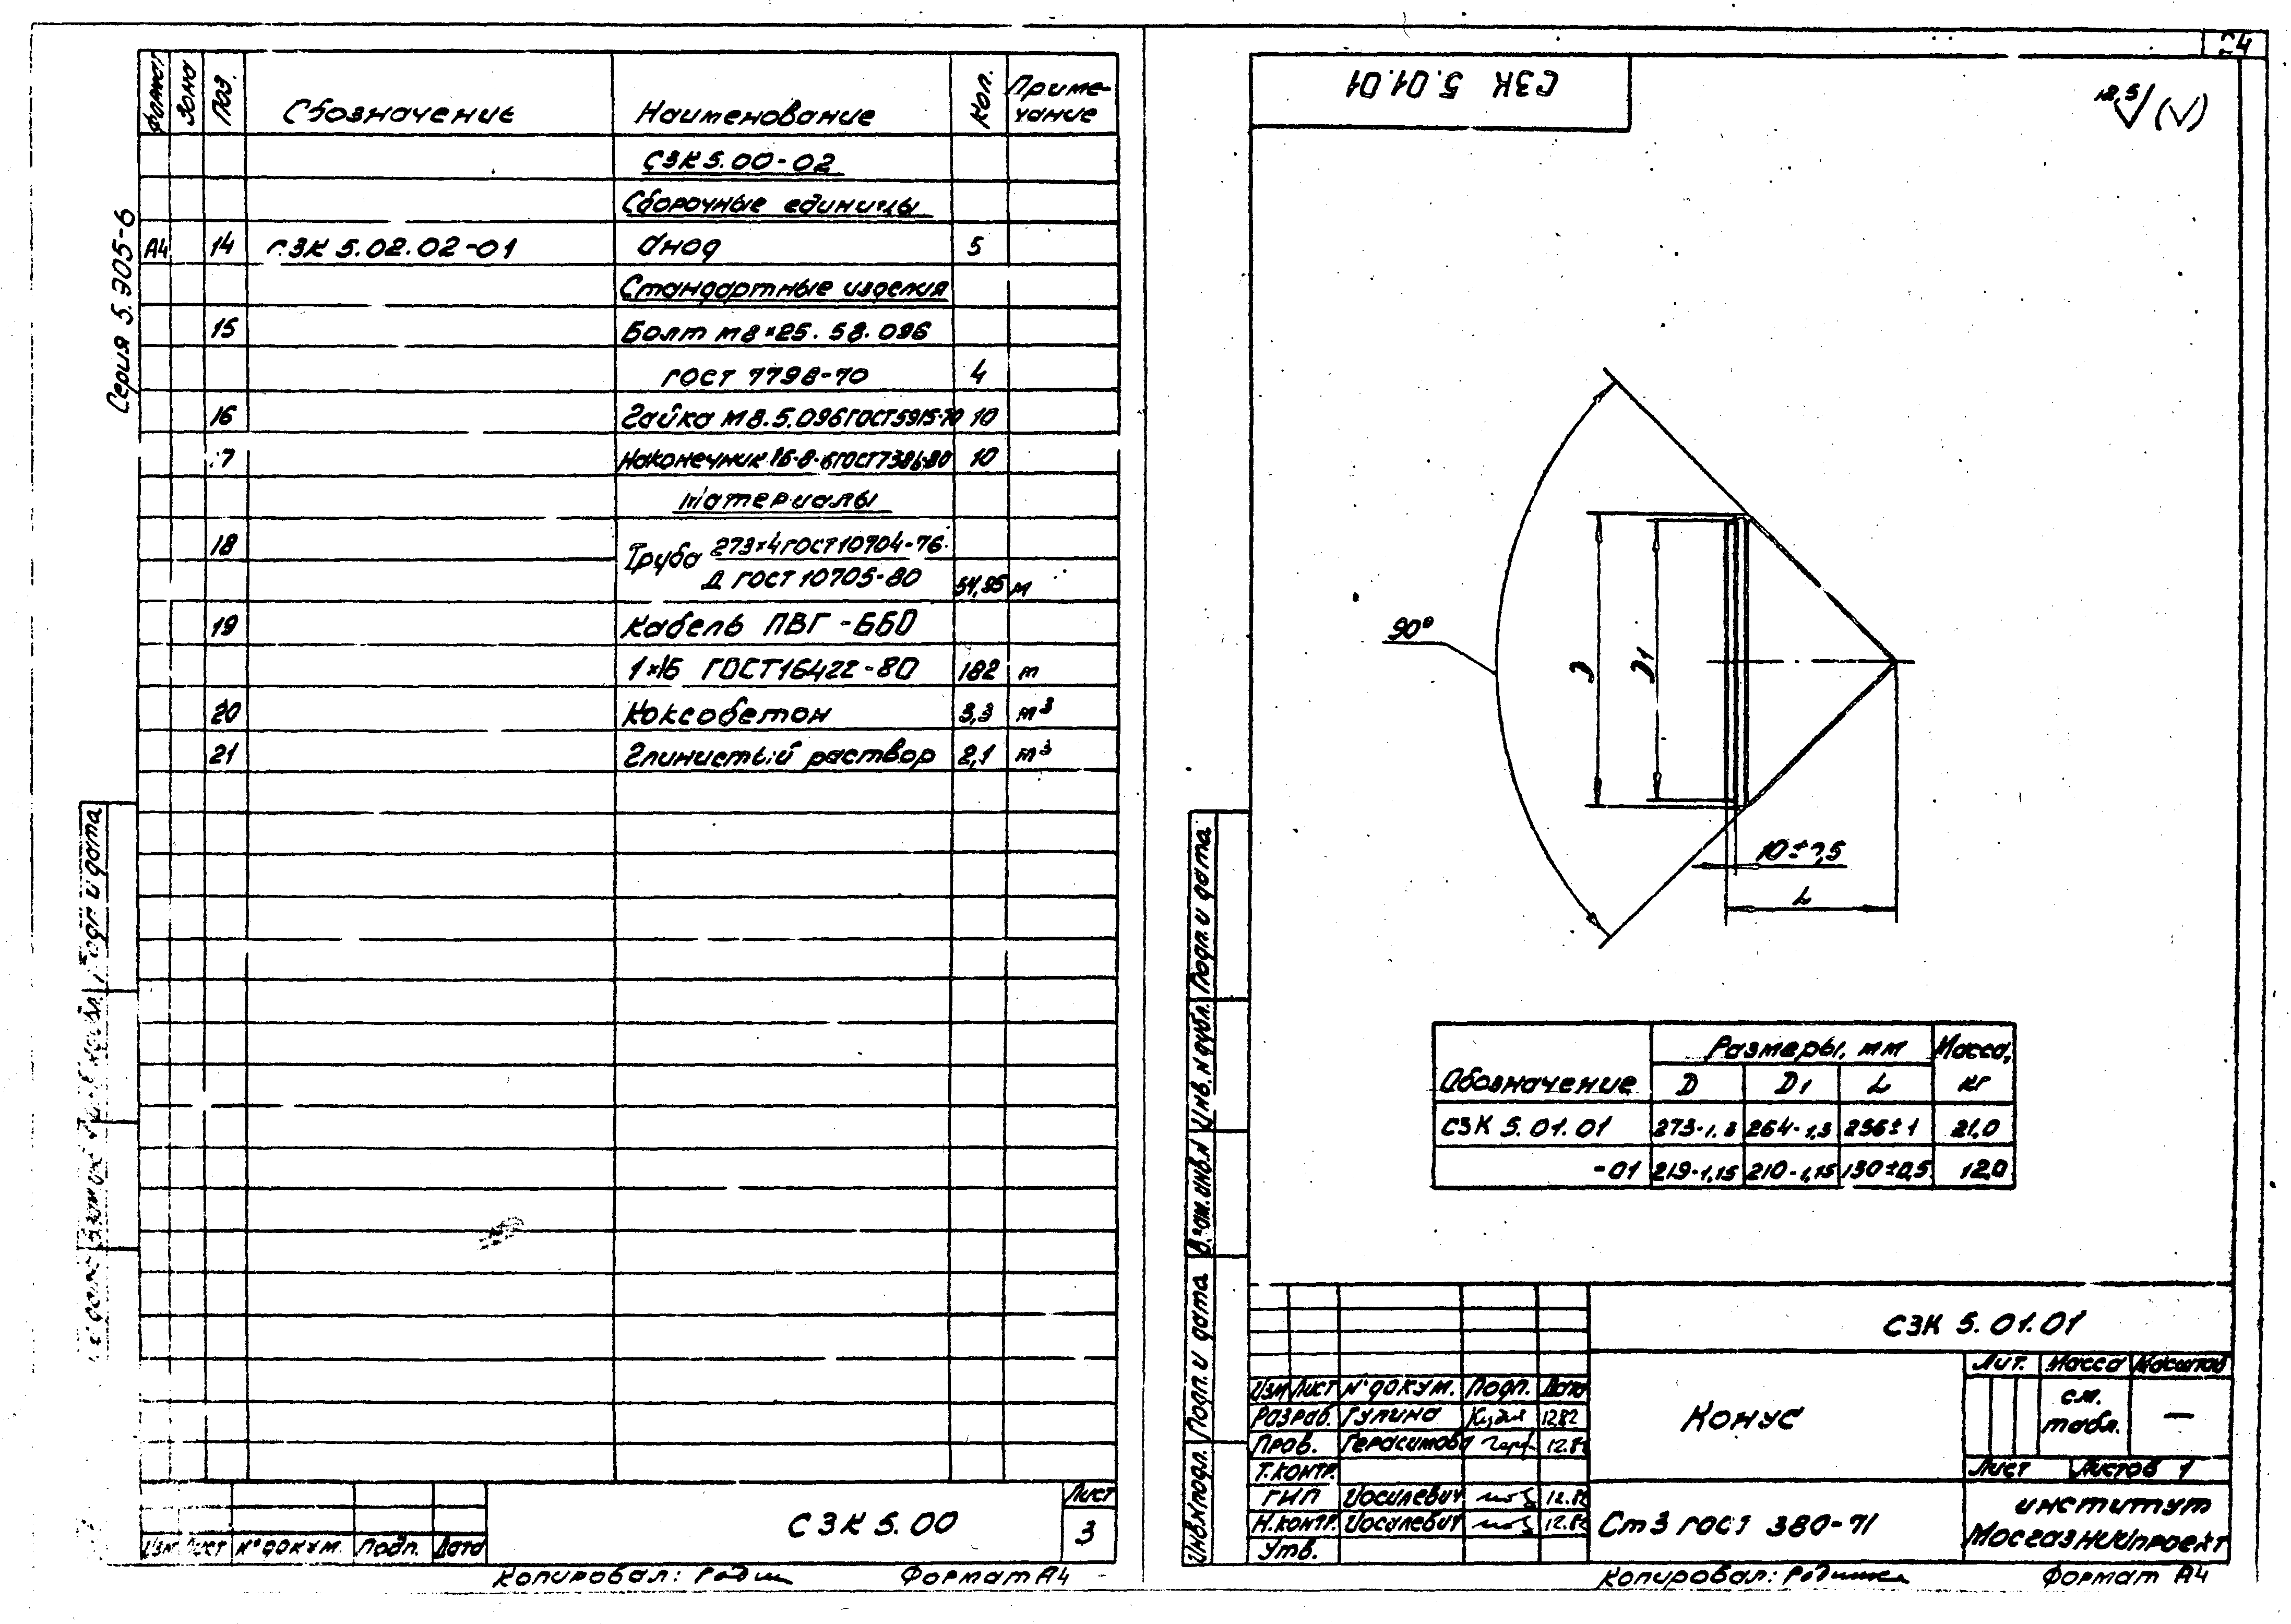 Серия 5.905-6
Формат Зона Поз. Обозначение Наименование Кол. Приме-
чание
СЗК 5.00-02
Сборочные единицы
А4 14 СЗК 5.02.02-01 Анод 5
Стандартные изделия
15 Болт М8×25.58.096
ГОСТ 7798-70 4
16 Гайка М8.5.096 ГОСТ 5915-70 10
17 Наконечник 16-8-6 ГОСТ 7386-80 10
Материалы
18 Труба 273×4 ГОСТ 10704-76
Д ГОСТ 10705-80 54,95 м
19 Кабель ПВГ-660
1×16 ГОСТ 16422-80 182 м
20 Коксобетон 3,3 м³
21 Глинистый раствор 2,1 м³
Подп. и дата
Изм Лист № докум. Подп. Дата
СЗК 5.00
Лист
3
Копировал:
Формат А4
24
СЗК 5.01.01
12,5 (√)
90°
D
D1
10±0,5
L
Обозначение Размеры, мм Масса,
D D1 L кг
СЗК 5.01.01 273-1,3 264-1,3 256±1 21,0
-01 219-1,15 210-1,15 130±0,5 12,0
Подп. и дата
Инв. № дубл.
Взам. инв. №
Подп. и дата
Инв. № подл.
СЗК 5.01.01
Изм Лист № докум. Подп. Дата
Разраб. Гулина 12.82
Пров. Герасимова 12.82
Т. контр.
ГИП Иосилевич 12.82
Н. контр. Иосилевич 12.82
Утв.
Конус
Лит. Масса Масштаб
см.
табл. —
Лист Листов 1
Ст3 ГОСТ 380-71
институт
МосгазНИИпроект
Копировал:
Формат А4